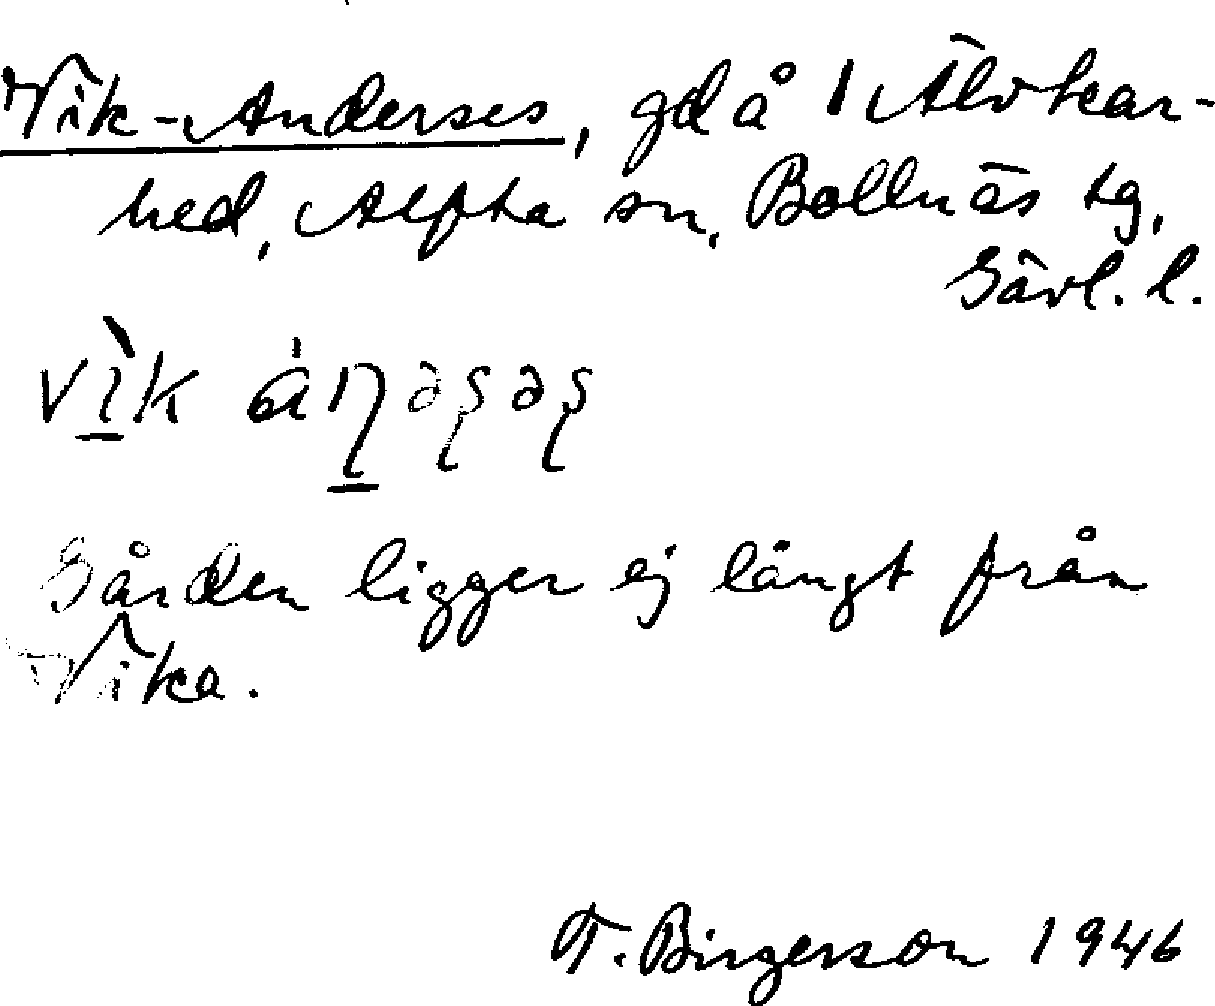 Vik-Anderses, gd å 1 Älvkar-
hed, Alfta sn, Bollnäs tg,
Gävl. l.
vìk áṇəʂəʂ
Gården ligger ej långt från
Vika.
T. Birgerson 1946